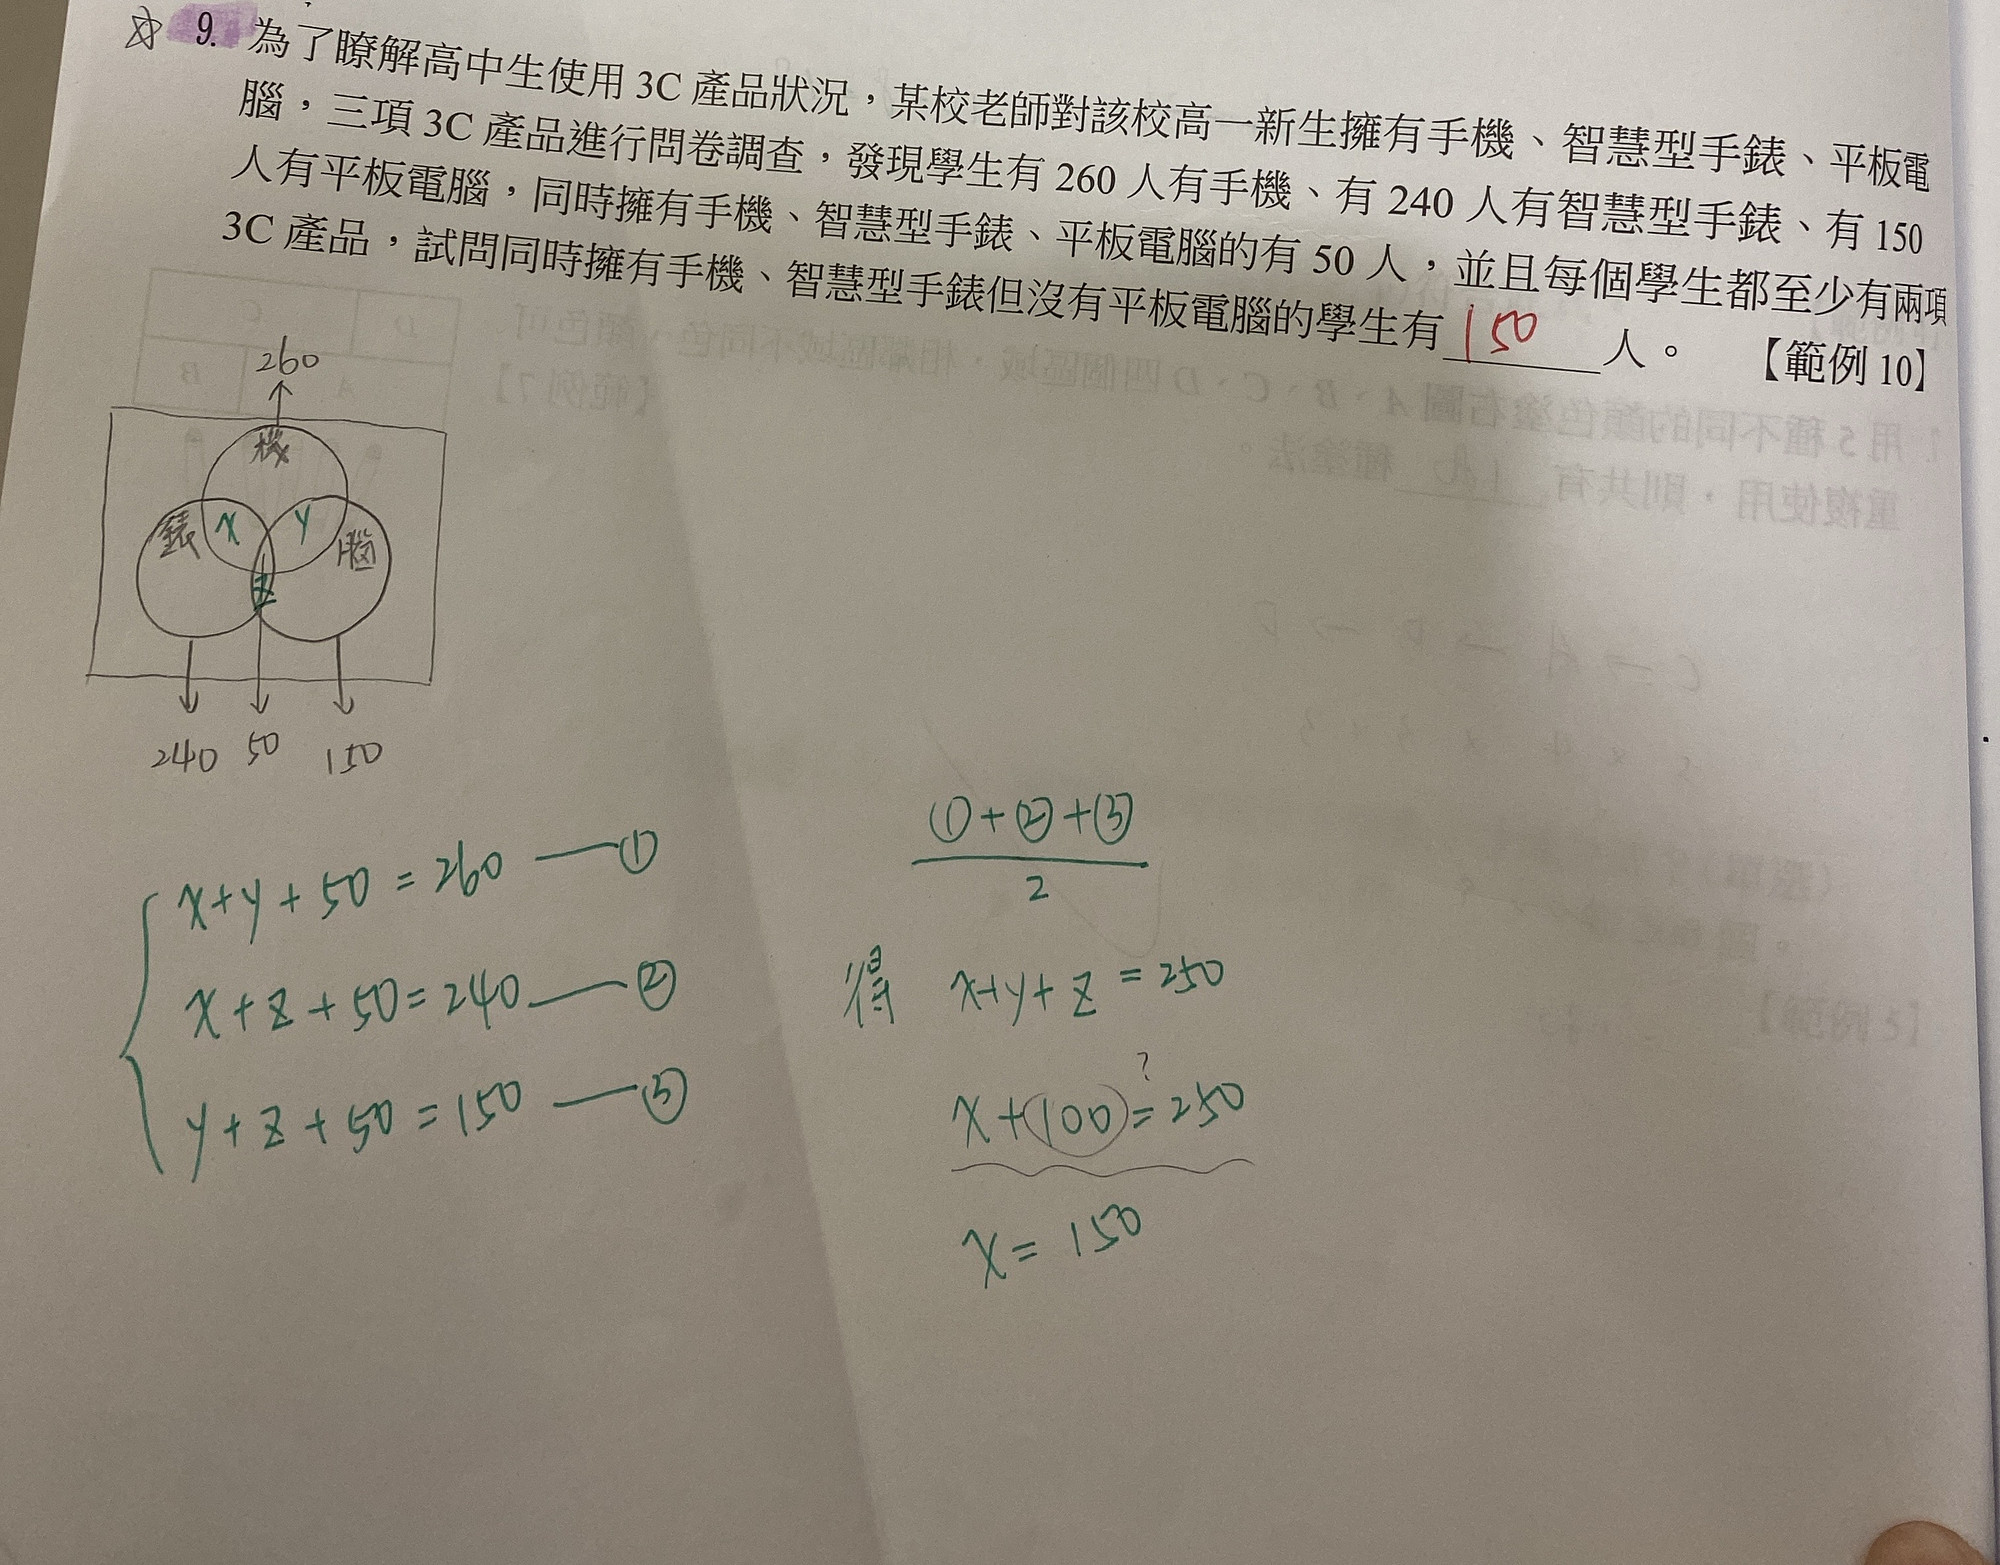 9. 為了瞭解高中生使用 3C 產品狀況，某校老師對該校高一新生擁有手機、智慧型手錶、平板電
腦，三項 3C 產品進行問卷調查，發現學生有 260 人有手機、有 240 人有智慧型手錶、有 150
人有平板電腦，同時擁有手機、智慧型手錶、平板電腦的有 50 人，並且每個學生都至少有兩項
3C 產品，試問同時擁有手機、智慧型手錶但沒有平板電腦的學生有 150 人。 【範例 10】
260
機
錶 x y 腦
z
240 50 150
x+y+50=260 ——①
x+z+50=240 ——②
y+z+50=150 ——③
①+②+③
2
得 x+y+z=250
?
x+100=250
x=150